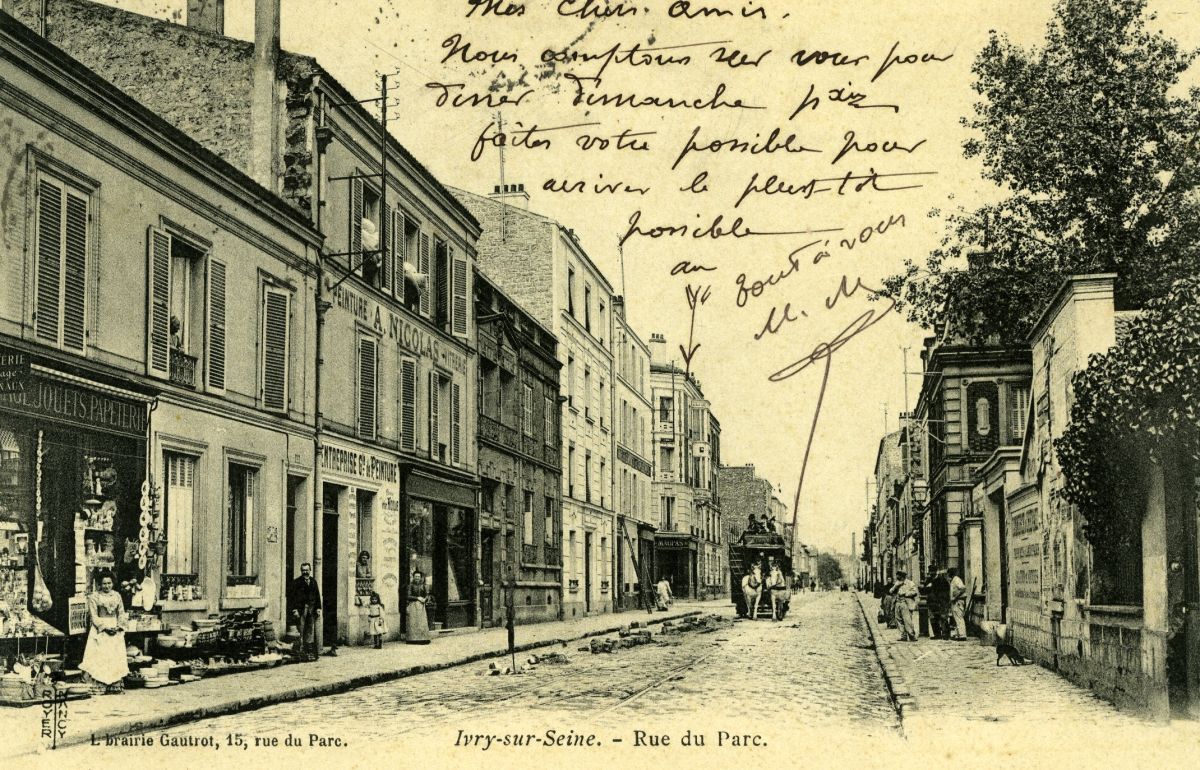 Mes chers amis.
Nous comptons sur vous pour
diner dimanche px
faites votre possible pour
arriver le plus tôt
possible
au
tout à vous
M. M.
PEINTURE A. NICOLAS VITRERIE
JOUETS PAPETERIE
ENTREPRISE Gle de PEINTURE
ROYER NANCY
Librairie Gautrot, 15, rue du Parc.
Ivry-sur-Seine. - Rue du Parc.